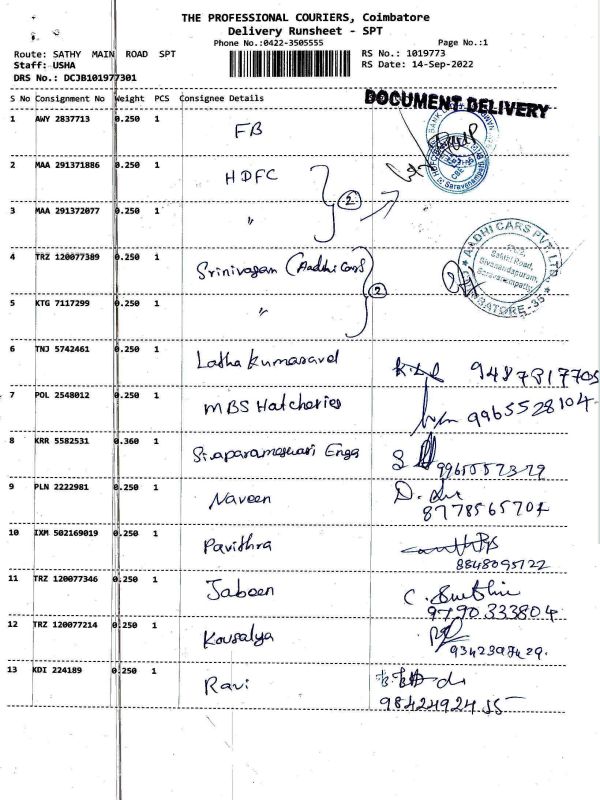 THE PROFESSIONAL COURIERS, Coimbatore
Delivery Runsheet - SPT
Phone No.:0422-3505555 Page No.:1
Route: SATHY MAIN ROAD SPT RS No.: 1019773
Staff: USHA RS Date: 14-Sep-2022
DRS No.: DCJB101977301
S No Consignment No Weight PCS Consignee Details DOCUMENT DELIVERY
1 AWY 2837713 0.250 1 FB
2 MAA 291371886 0.250 1 HDFC
2
3 MAA 291372077 0.250 1 "
4 TRZ 120077389 0.250 1 Srinivasan (Aadhi Cars)
AADHI CARS PVT. LTD.
Sathi Road,
Sivanandapuram,
Saravanampatty
2
5 KTG 7117299 0.250 1 "
6 TNJ 5742461 0.250 1 Latha Kumaravel
7 POL 2548012 0.250 1 MBS Hatcheries 9965528104
8 KRR 5582531 0.360 1 Sivaparameswari Engg
9 PLN 2222981 0.250 1 Naveen
10 IXM 502169019 0.250 1 Pavithra
11 TRZ 120077346 0.250 1 Jabeen
9790333804
12 TRZ 120077214 0.250 1 Kousalya
13 KDI 224189 0.250 1 Ravi
9842492455